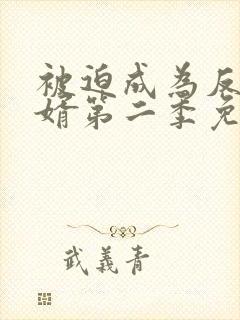 被迫成為反
婿第二季免
武義青